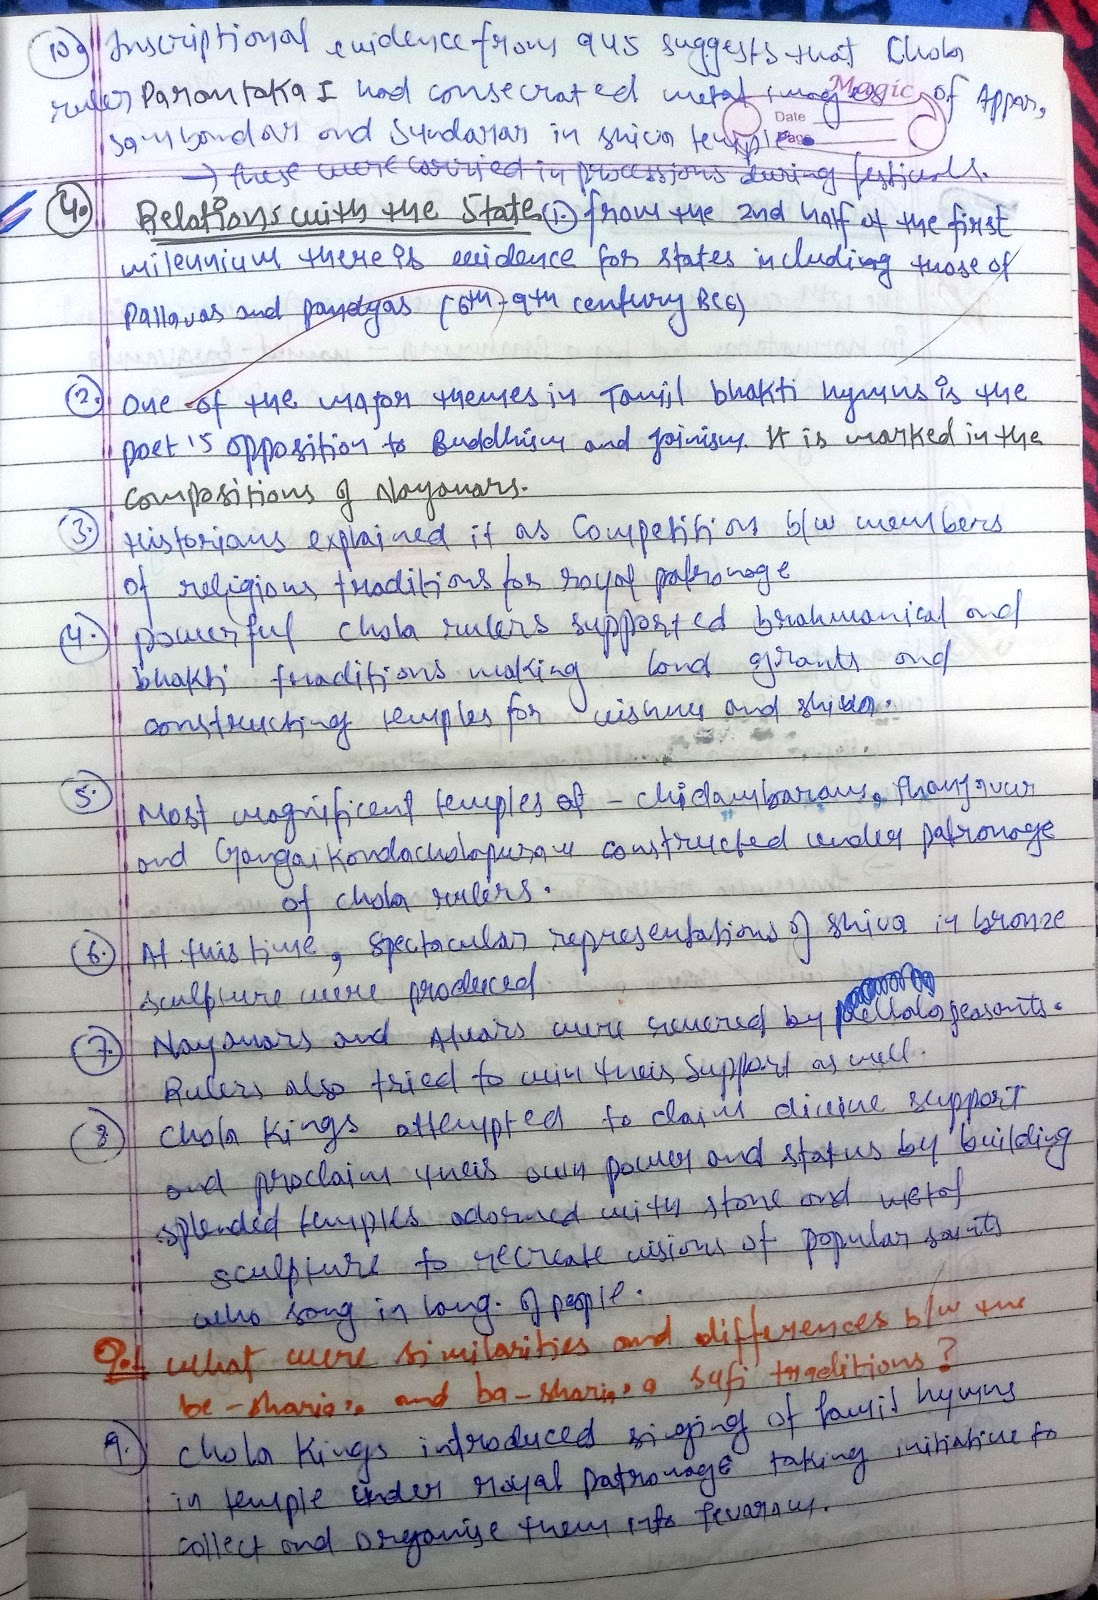 10. Inscriptional evidence from 945 suggests that Chola
ruler Parantaka I had consecrated metal images of Appar,
Magic
Date
Page
Sambandar and Sundarar in shiva temple
→ these were carried in processions during festivals.
4. Relations with the State ① from the 2nd half of the first
millennium there is evidence for states including those of
Pallavas and pandyas (6th - 9th century BCE)
2. One of the major themes in Tamil bhakti hymns is the
poet's opposition to Buddhism and jainism. It is marked in the
compositions of Nayanars.
3. Historians explained it as Competition b/w members
of religious traditions for royal patronage
4. powerful chola rulers supported brahmanical and
bhakti traditions making land grants and
constructing temples for vishnu and shiva.
5. Most magnificent temples of - chidambaram, thanjavur
and Gangaikondacholapuram constructed under patronage
of chola rulers.
6. At this time, spectacular representations of shiva in bronze
sculpture were produced
7. Nayanars and Alvars were revered by vellala peasants.
Rulers also tried to win their support as well.
8 Chola Kings attempted to claim divine support
and proclaim their own power and status by building
splended temples adorned with stone and metal
sculpture to recreate visions of popular saints
who sang in lang. of people.
Q.1 What were similarities and differences b/w the
be-sharia and ba-sharia sufi traditions?
9. Chola Kings introduced singing of tamil hymns
in temple under royal patronage taking initiative to
collect and organise them into Tevaram.